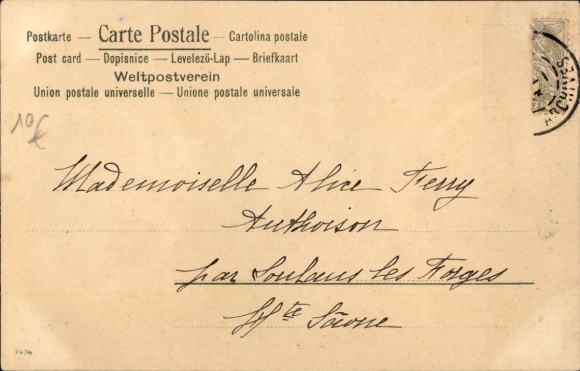 Postkarte — Carte Postale — Cartolina postale
Post card — Dopisnice — Levelező-Lap — Briefkaart
Weltpostverein
Union postale universelle — Unione postale universale
10€
Mademoiselle Alice Ferry
Authoison
par Loulans les Forges
Hte Sâone
7474